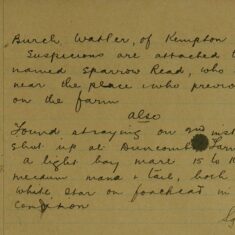 Burch Walter, of Kempton
Suspicions are attached t
named Sparrow Read, who
near the place & who previo
on the farm
also
Found straying on 2nd inst
shut up at Duncomb Farm
a light bay mare 15 to 16
medium mane & tail, both
white star on forehead in
condition